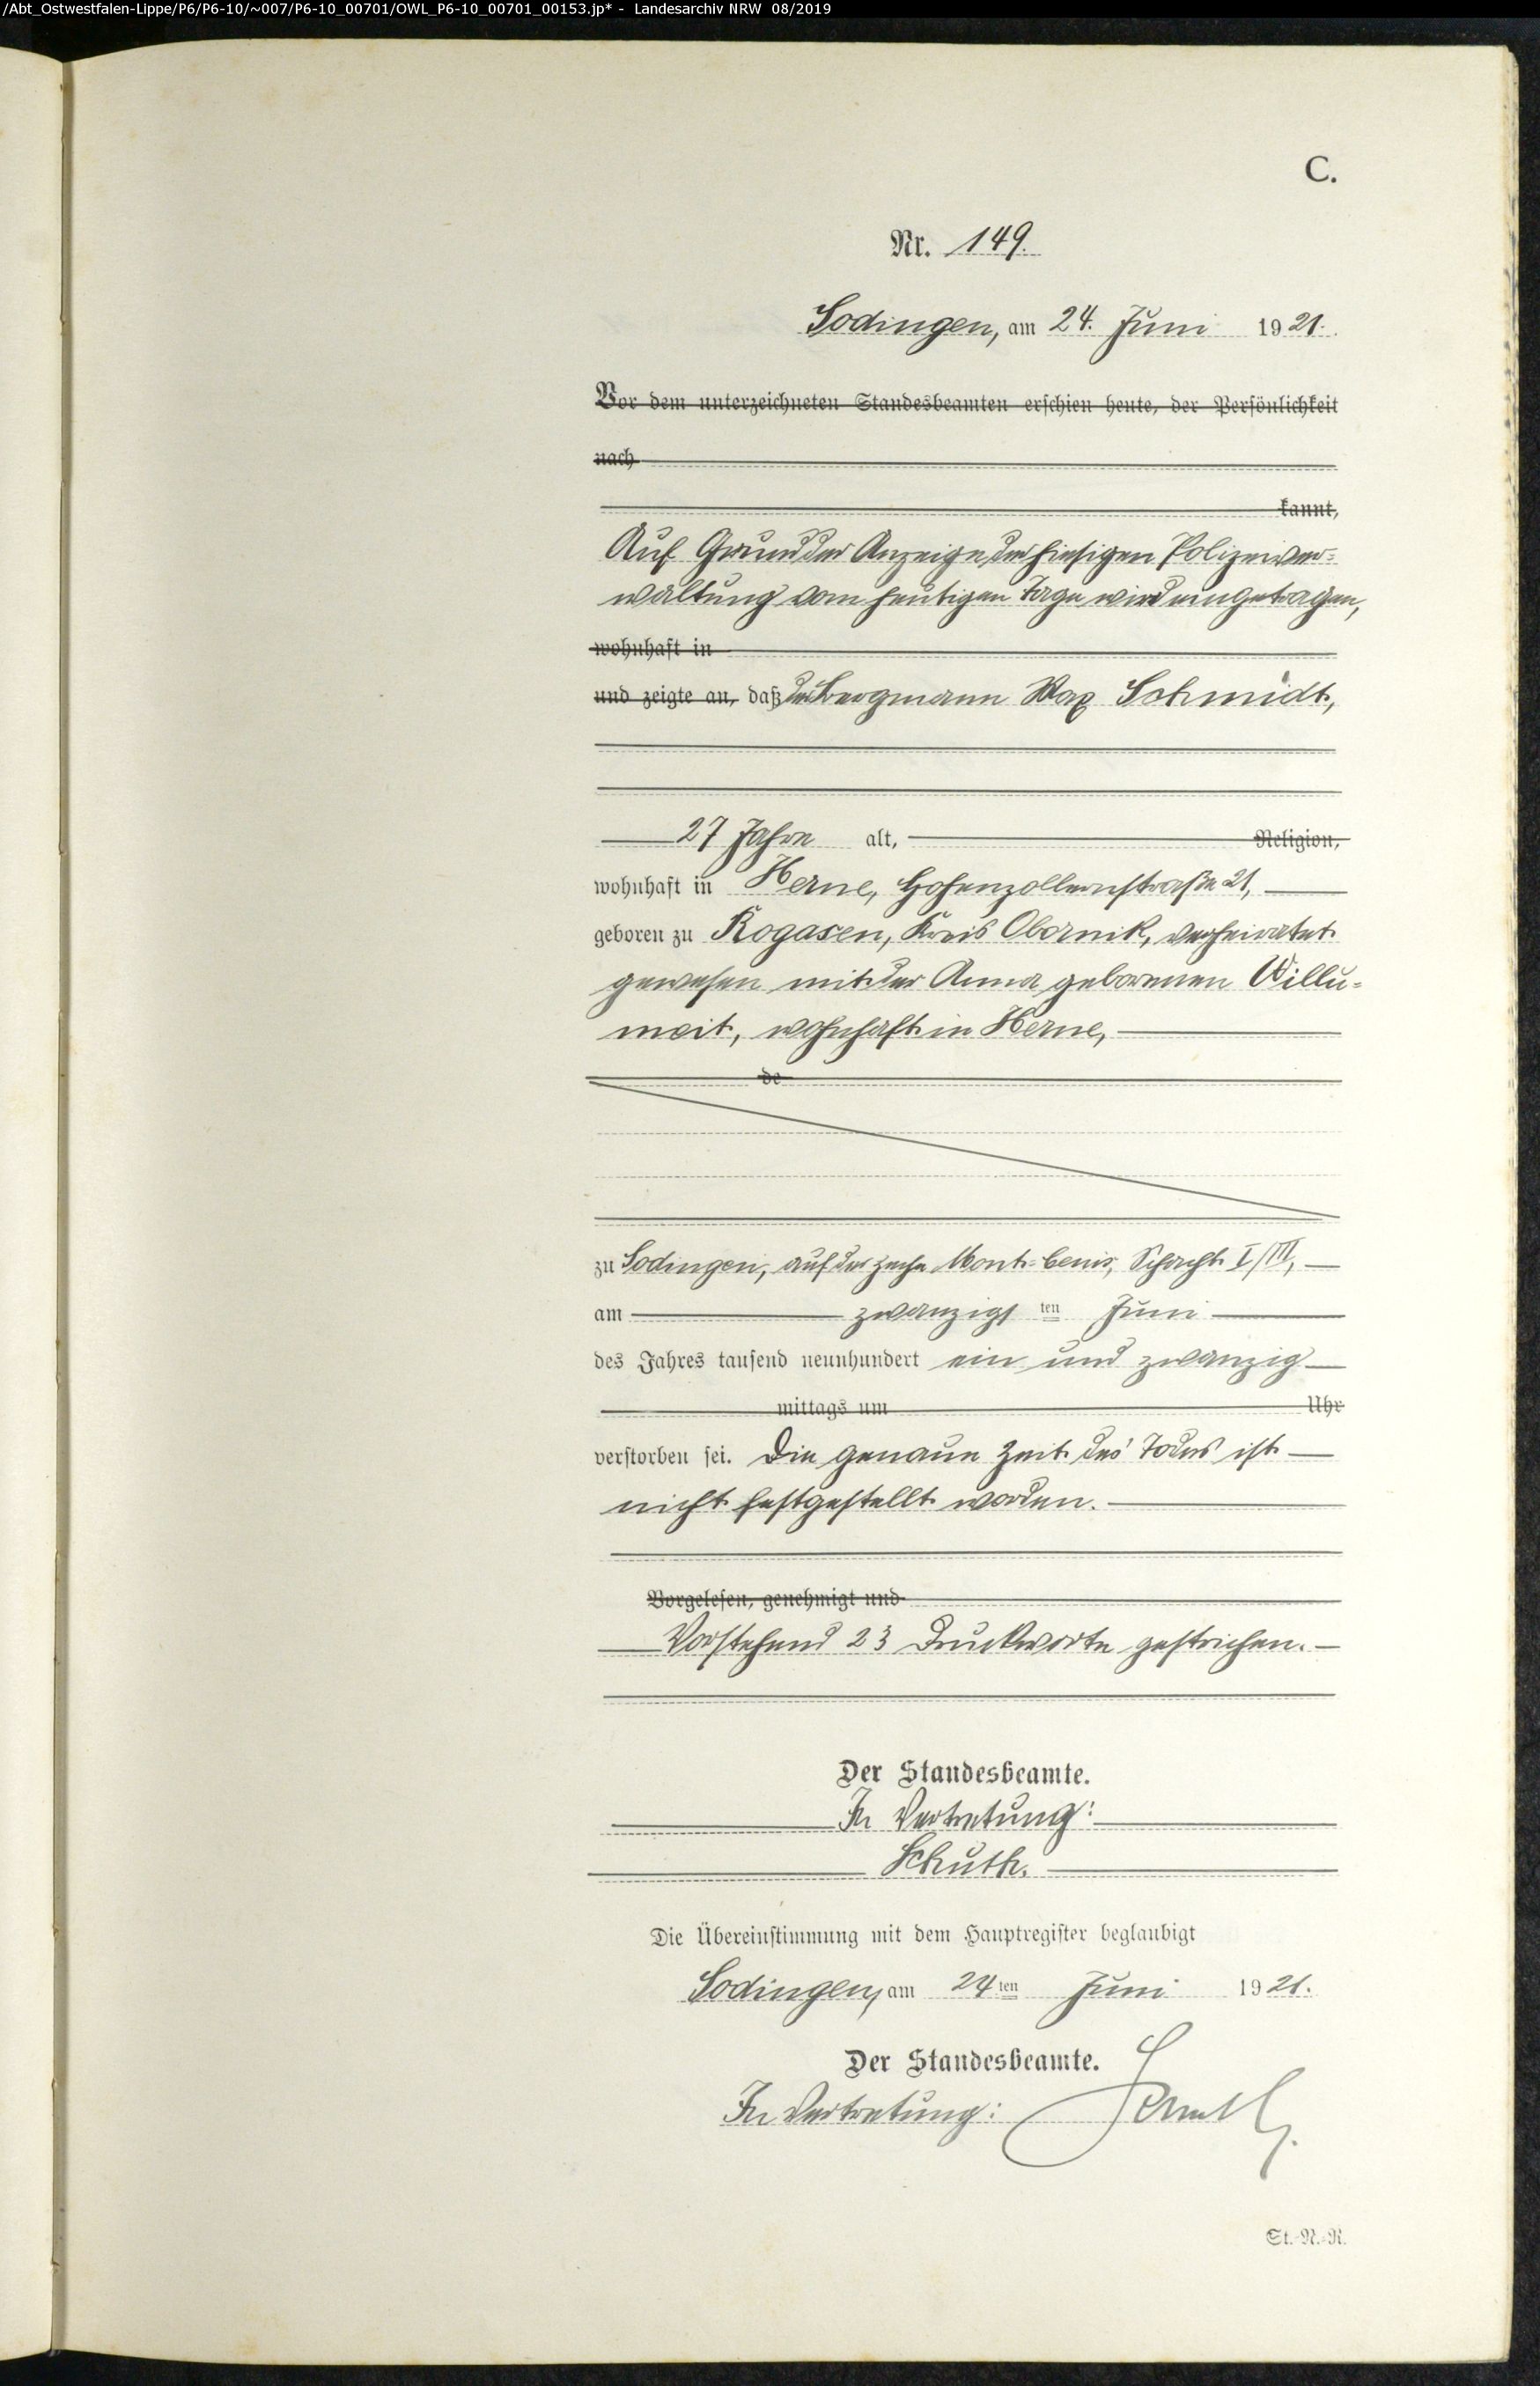 /Abt_Ostwestfalen-Lippe/P6/P6-10/~007/P6-10_00701/OWL_P6-10_00701_00153.jp* - Landesarchiv NRW 08/2019
C.
Nr. 149.
Sodingen, am 24. Juni 1921.
Vor dem unterzeichneten Standesbeamten erschien heute, der Persönlichkeit
nach
kannt,
Auf Grund der Anzeige der hiesigen Polizeiver-
waltung vom heutigen Tage wird eingetragen,
wohnhaft in
und zeigte an, daß der Bergmann Max Schmidt,
27 Jahre alt, Religion,
wohnhaft in Herne, Hohenzollernstraße 21,
geboren zu Rogasen, Kreis Obornik, verheiratet
gewesen mit der Anna geborenen Willu-
meit, wohnhaft in Herne,
de
zu Sodingen, auf der Zeche Mont-Cenis, Schacht I/III,
am zwanzigsten Juni
des Jahres tausend neunhundert ein und zwanzig
mittags um Uhr
verstorben sei. Die genaue Zeit des Todes ist
nicht festgestellt worden.
Vorgelesen, genehmigt und
Vorstehend 23 Druckworte gestrichen.
Der Standesbeamte.
In Vertretung:
Schuth.
Die Übereinstimmung mit dem Hauptregister beglaubigt
Sodingen, am 24ten Juni 1921.
Der Standesbeamte.
In Vertretung: Schuth.
St.-N.-R.